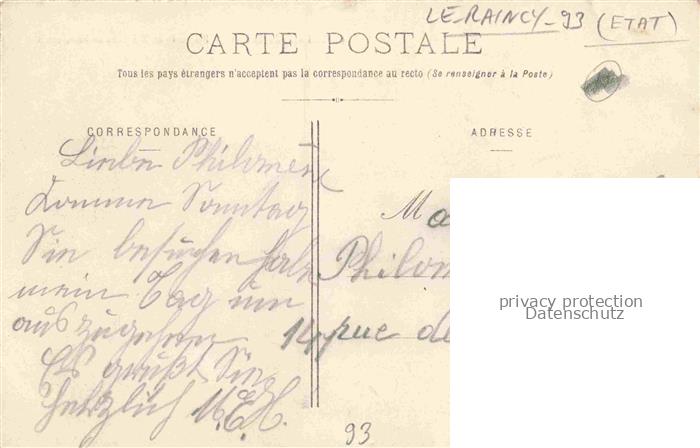 LE-RAINCY-93 (ETAT)
CARTE POSTALE
Tous les pays étrangers n'acceptent pas la correspondance au recto (Se renseigner à la Poste)
CORRESPONDANCE
Liebe Philomène
Komme Sonntag
Sie besuchen habe
mein Tag um
auszugehen
Es grüßt Sie
herzlich M. E. H.
ADRESSE
Ma
Philom
14 rue de
privacy protection
Datenschutz
93